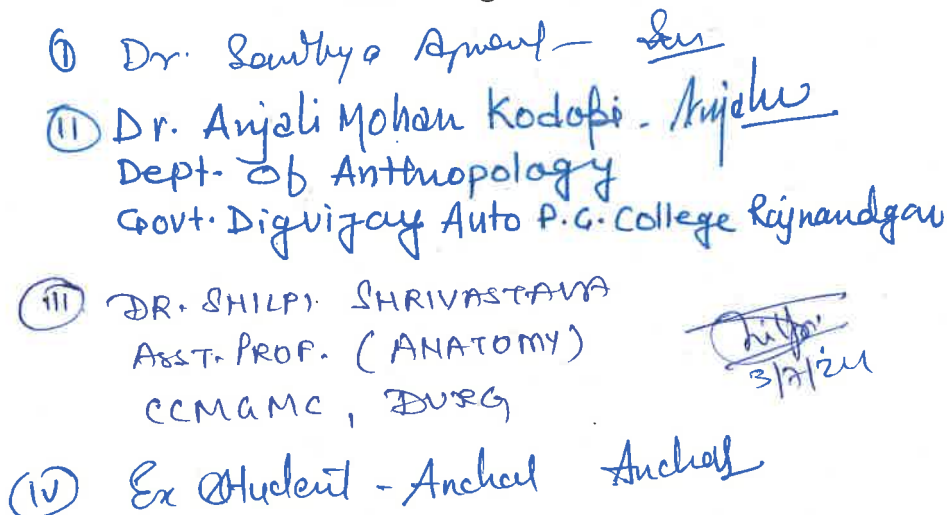 (i) Dr. Sandhya
(ii) Dr. Anjali Mohan Kodopi - Anjali
Dept. of Anthropology
Govt. Digvijay Auto P.G. College Rajnandgaw
(iii) DR. SHILPI SHRIVASTAVA
ASST. PROF. (ANATOMY)
CCMGMC, DURG
Shilpi
3/7/24
(iv) Ex Student - Anchal Anchal